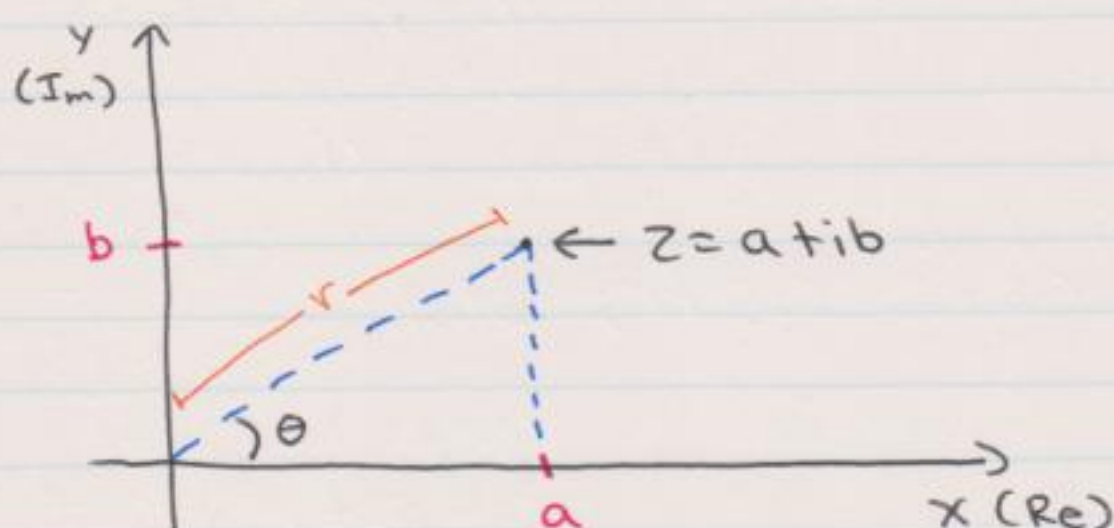 y
(Im)
b
r
← z = a + ib
θ
a
x (Re)